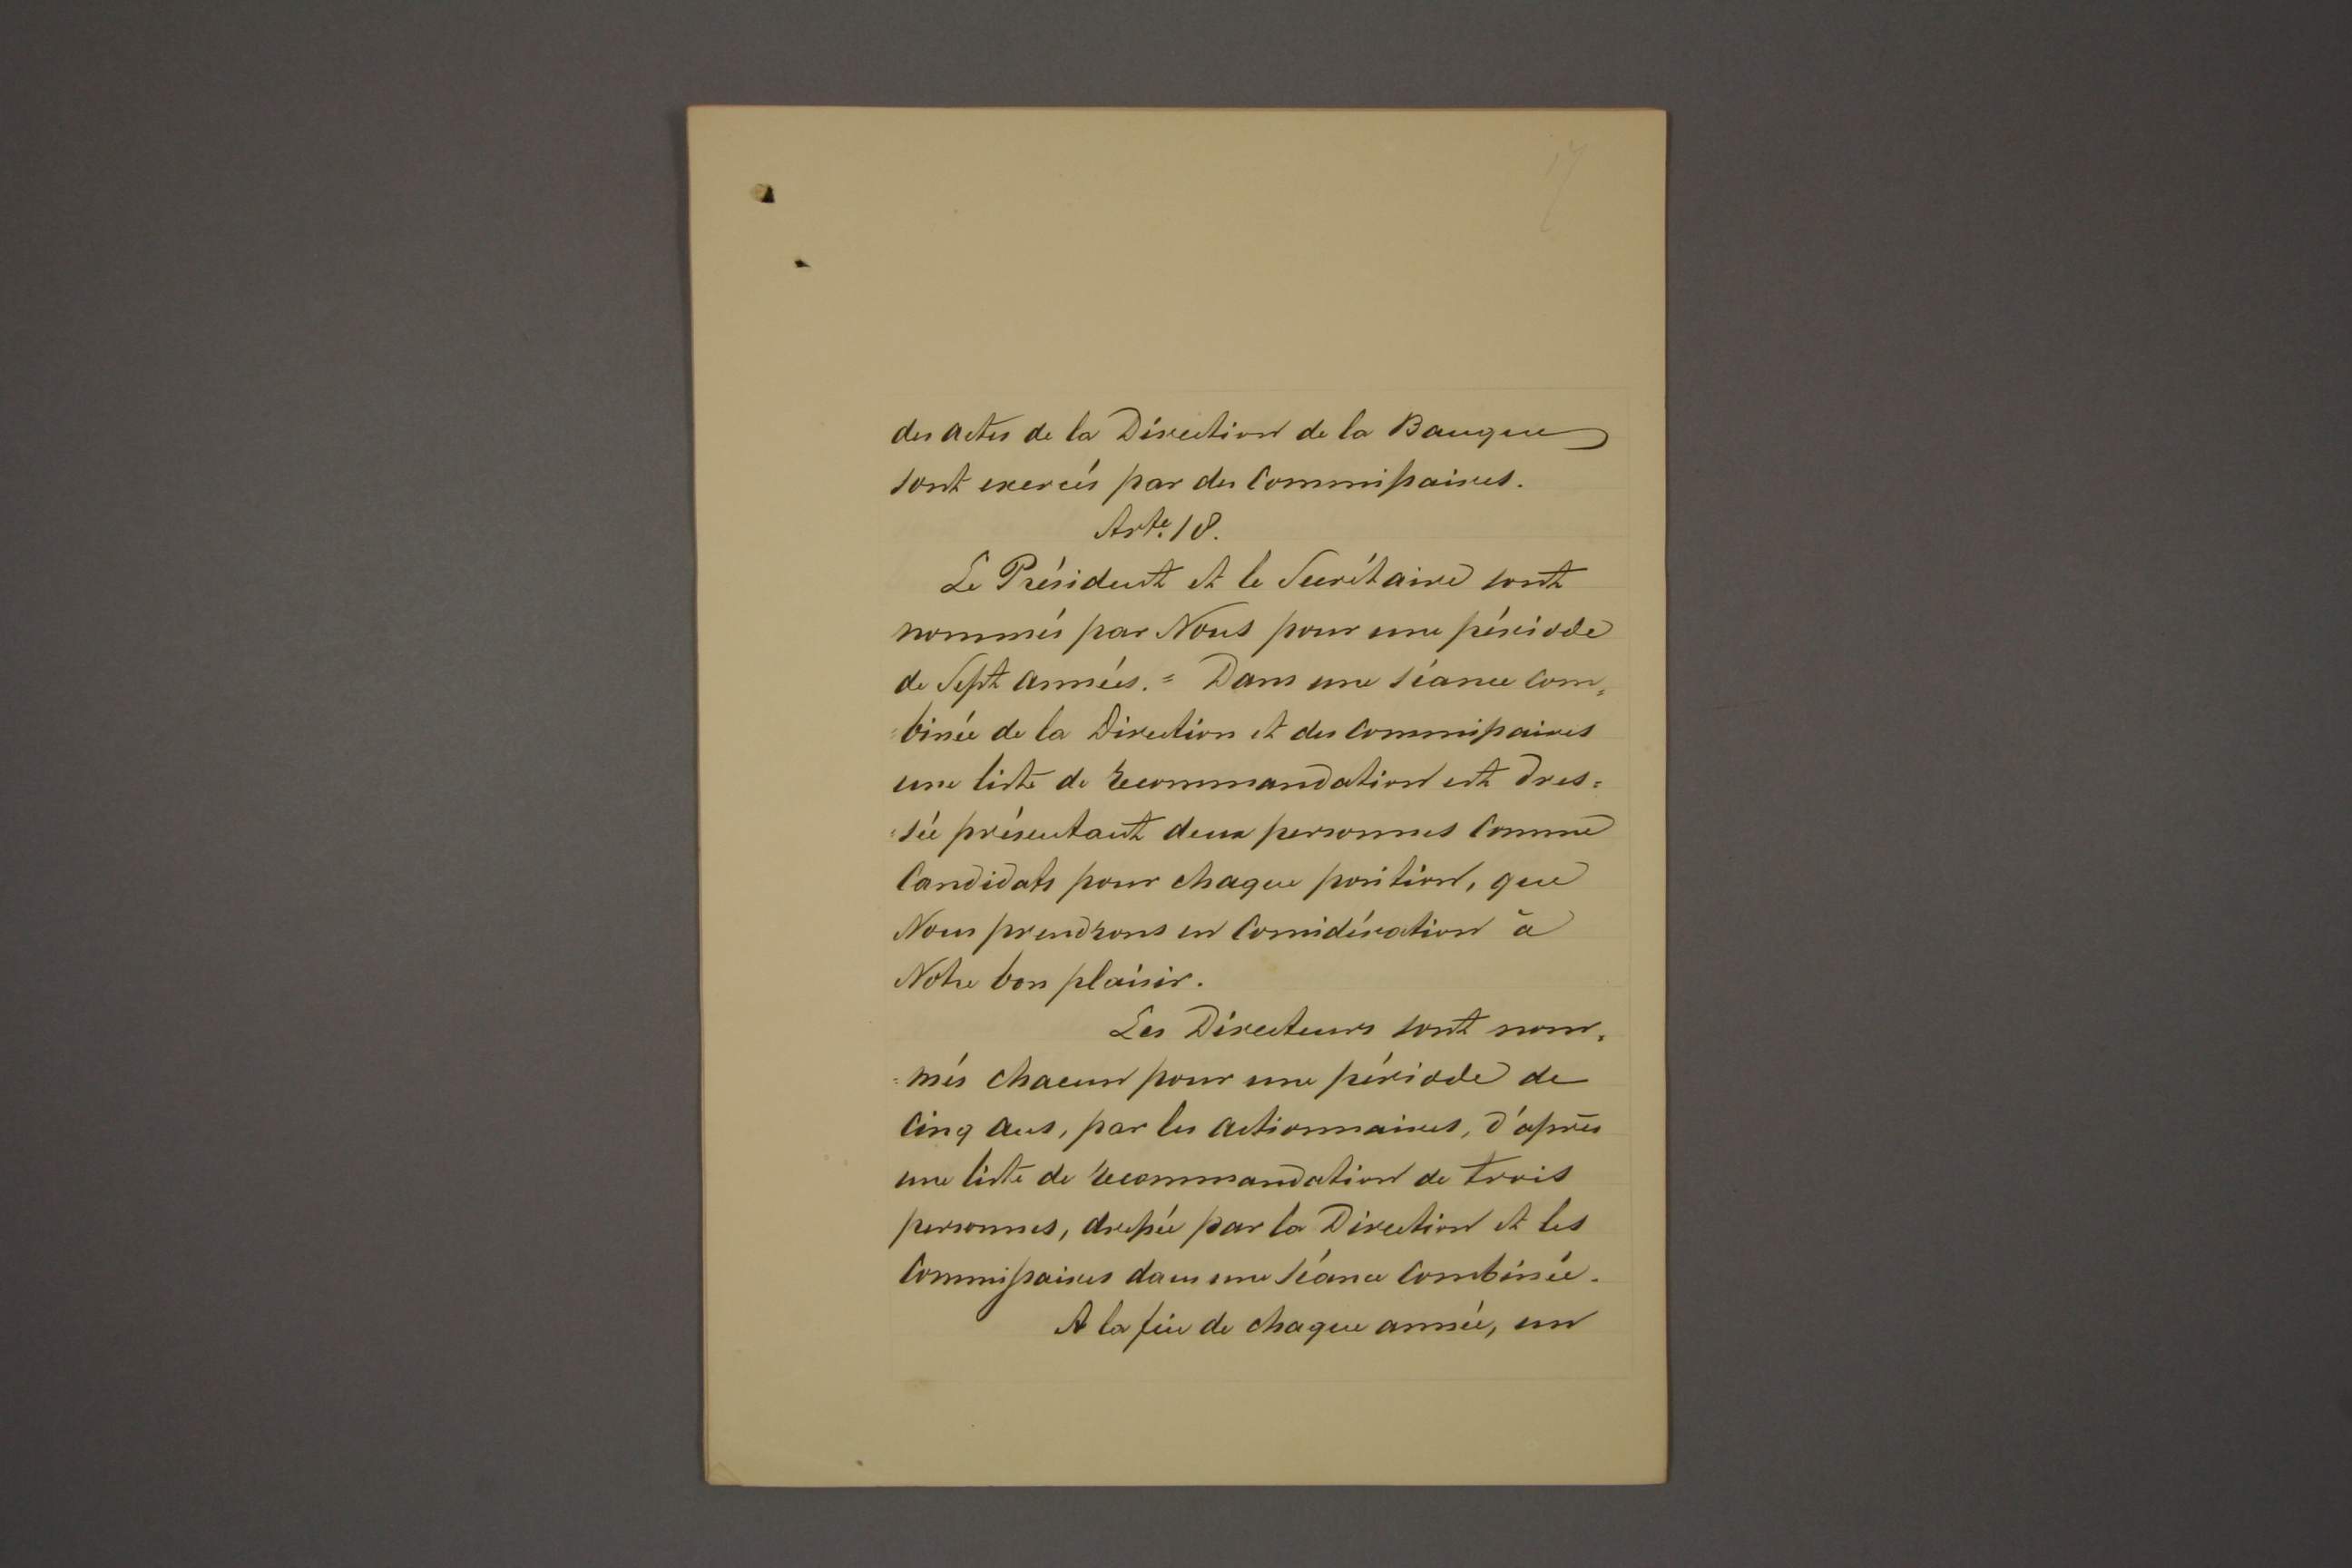 17
des actes de la Direction de la Banque
sont exercés par des Commissaires.
Arte. 18.
Le Président et le Secrétaire sont
nommés par Nous pour une période
de Sept années. = Dans une séance com=
=binée de la Direction et des Commissaires
une liste de recommandation est dres=
=sée présentant deux personnes comme
Candidats pour chaque position, que
Nous prendrons en Considération à
Notre bon plaisir.
Les Directeurs sont nom=
=més chacun pour une période de
Cinq ans, par les actionnaires, d'après
une liste de recommandation de trois
personnes, dressée par la Direction et les
Commissaires dans une séance Combinée.
A la fin de chaque année, un